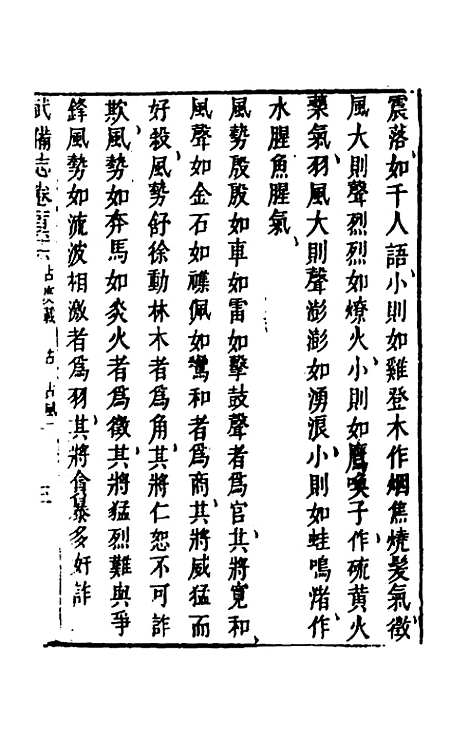 震落如千人語小則如雞登木作烟焦燒髮氣徵
風大則聲烈烈如燎火小則如鷹喚子作硫黃火
藥氣羽風大則聲澎澎如湧浪小則如蛙鳴渚作
水腥魚腥氣
風勢殷殷如車如雷如擊鼓聲者爲宮其將寬和
風聲如金石如禩佩如鸞和者爲商其將威猛而
好殺風勢舒徐動林木者爲角其將仁恕不可詐
欺風勢如奔馬如炎火者爲徵其將猛烈難與爭
鋒風勢如流波相激者爲羽其將貪暴多奸詐
武備志卷 占度載 占 占風